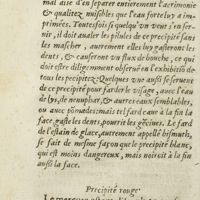 mal aisé d'en separer entierement l'acrimonie
& qualitez nuisibles que l'eau forte luy a im-
primées. Toutesfois si quelqu'vn veut s'en ser-
uir, il doit aualer les pilules de ce precipité sans
les mascher, autrement elles luy gasteront les
dents, & causeront vn flux de bouche, ce qui
doit estre diligemment obserué en l'exhibitiõ de
tous les precipitez. Quelques vns aussi se seruent
de ce precipité pour farder le visage, auec l'eau
de lys, de nenuphar, & autres eaux semblables,
ou auec põmades: mais tel fard caue à la fin la
face, gaste les dents, pourrit les gẽciues. Le fard
de l'estain de glace, autrement appellé bismuth,
se fait de mesme façon que le precipité blanc,
qui est moins dangereux, mais noircit à la fin
aussi la face.
Precipité rouge